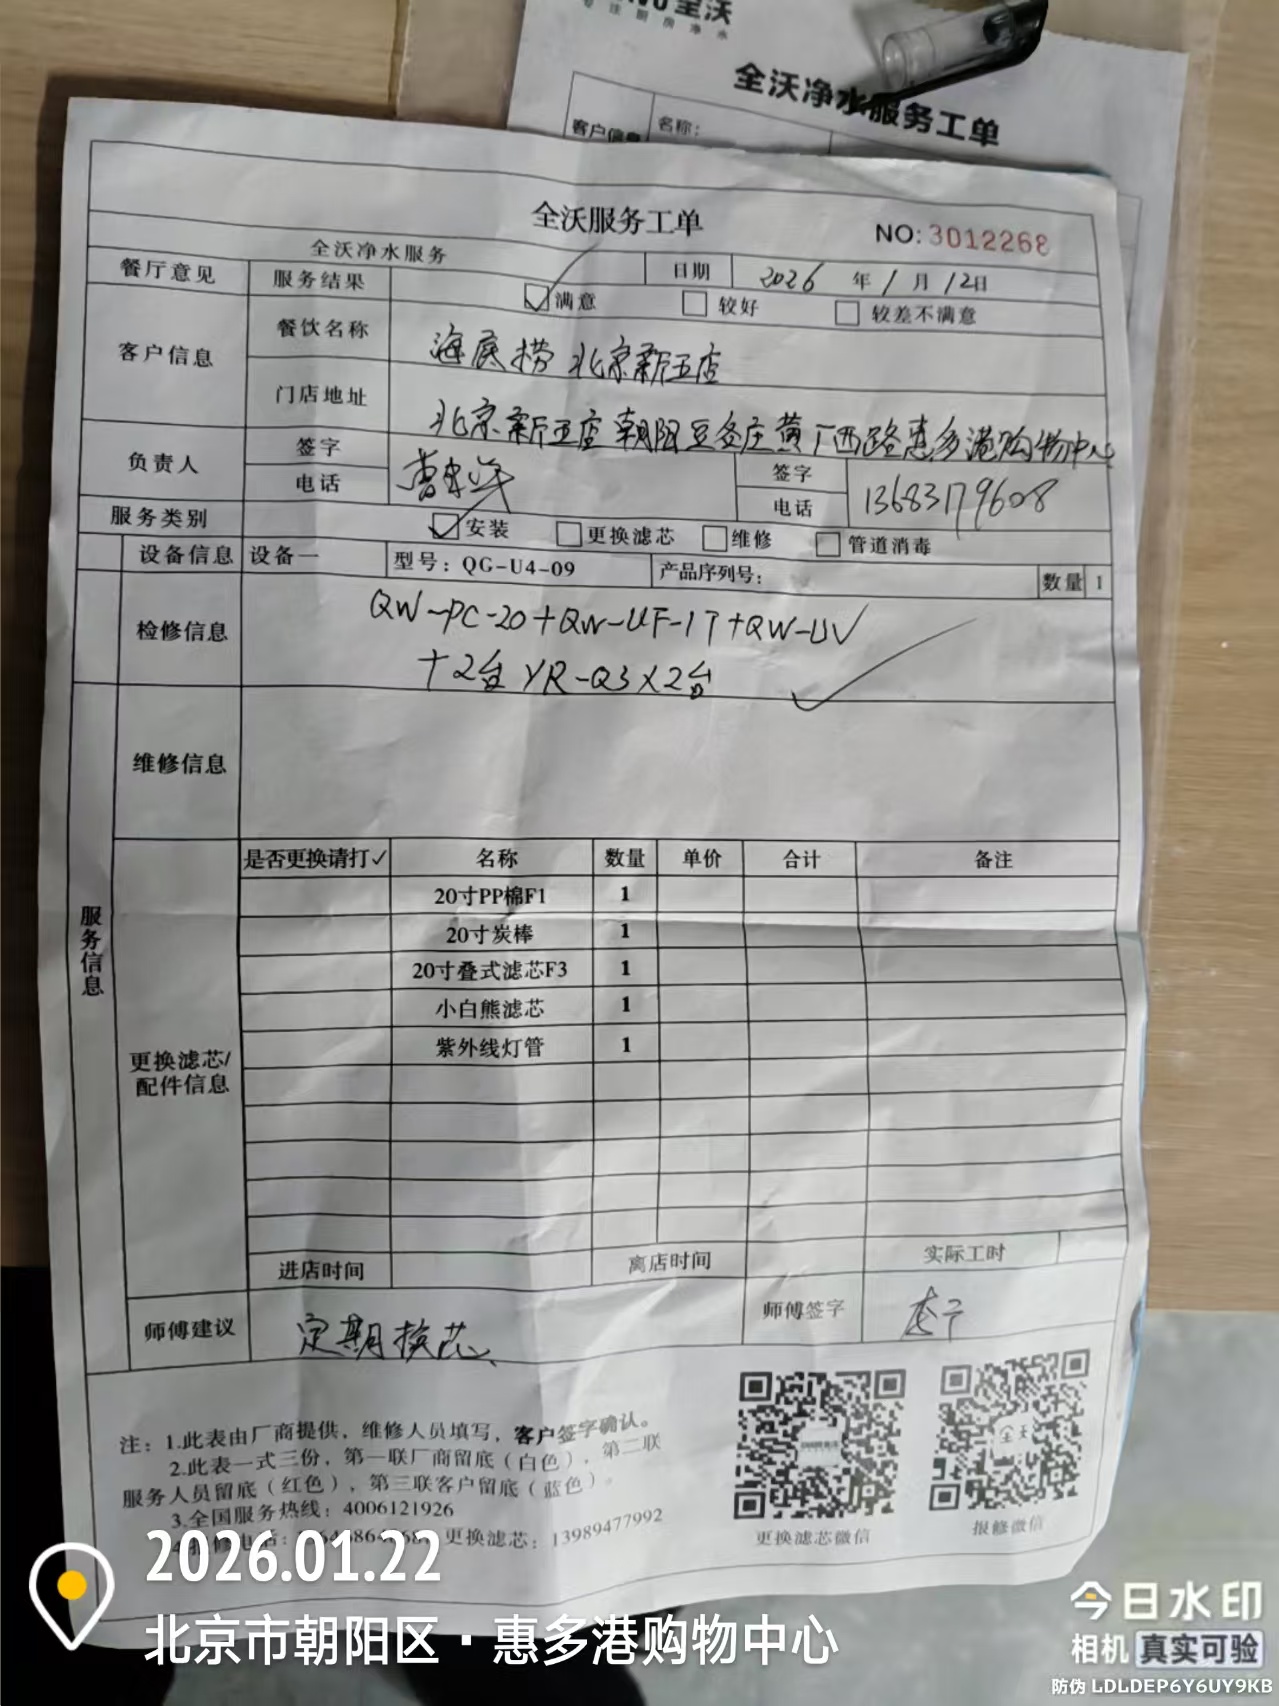 全沃
专注厨房净水
全沃净水服务工单
客户信息 名称：
全沃服务工单
NO: 3012268
全沃净水服务 日期 2026 年 1 月 12日
餐厅意见 服务结果 满意 较好 较差不满意
客户信息 餐饮名称 海底捞 北京新五店
门店地址 北京新五店 朝阳豆各庄黄厂西路惠多港购物中心
负责人 签字 签字
电话 电话 13683179608
服务类别 安装 更换滤芯 维修 管道消毒
设备信息 设备一 型号：QG-U4-09 产品序列号： 数量 1
检修信息 QW-PC-20+QW-UF-1T+QW-UV
+2台 YR-Q3X2台
维修信息
服务信息
更换滤芯/配件信息
是否更换请打✓ 名称 数量 单价 合计 备注
20寸PP棉F1 1
20寸炭棒 1
20寸叠式滤芯F3 1
小白熊滤芯 1
紫外线灯管 1
进店时间 离店时间 实际工时
师傅建议 定期换芯 师傅签字
注：1.此表由厂商提供，维修人员填写，客户签字确认。
2.此表一式三份，第一联厂商留底（白色），第二联
服务人员留底（红色），第三联客户留底（蓝色）。
3.全国服务热线：4006121926
更换滤芯：13989477992
更换滤芯微信 报修微信
2026.01.22
北京市朝阳区·惠多港购物中心
今日水印
相机 真实可验
防伪 LDLDEP6Y6UY9KB